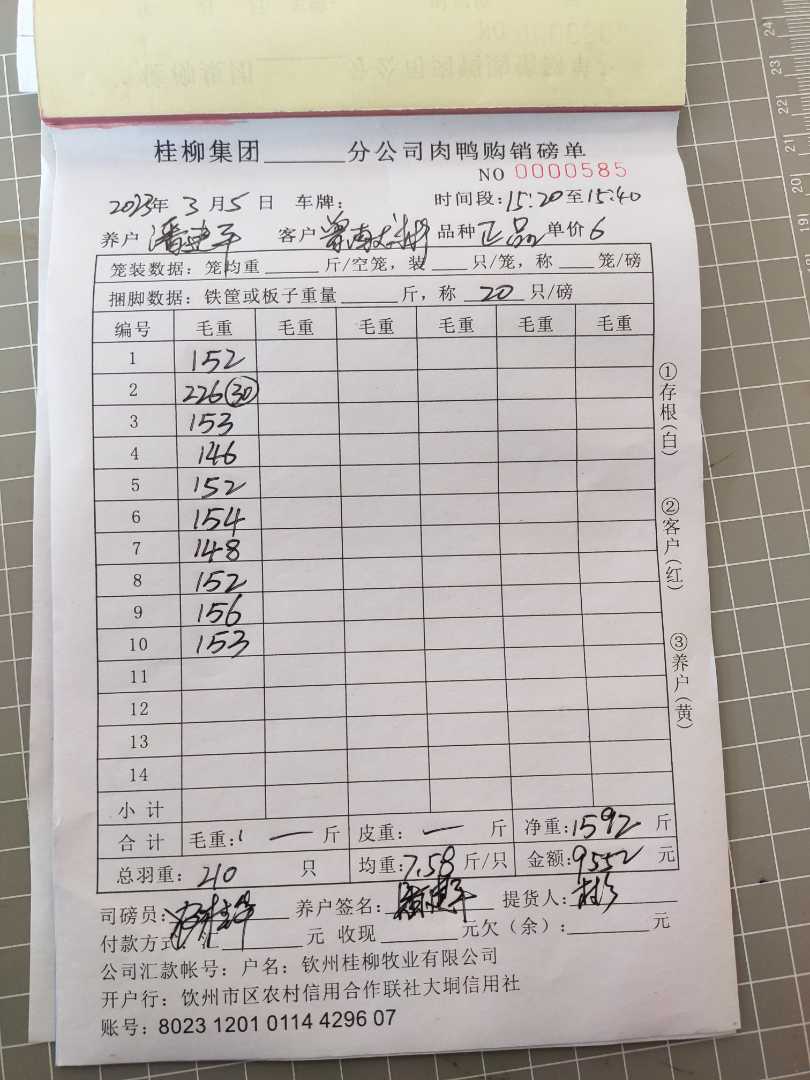 桂柳集团______分公司肉鸭购销磅单
NO 0000585
2023年 3 月 5 日 车牌: 时间段:15:20至15:40
养户 潘建平 客户 品种 正品 单价 6
笼装数据：笼均重______斤/空笼，装____只/笼，称____笼/磅
捆脚数据：铁筐或板子重量______斤，称 20 只/磅
编号 毛重 毛重 毛重 毛重 毛重 毛重
1 152
2 226(30)
3 153
4 146
5 152
6 154
7 148
8 152
9 156
10 153
11
12
13
14
小计
合计 毛重: — 斤 皮重: — 斤 净重:1592 斤
总羽重: 210 只 均重:7.58斤/只 金额:9552元
司磅员: 养户签名: 提货人:
付款方式: 汇______元 收现______元欠（余）:______元
公司汇款帐号：户名：钦州桂柳牧业有限公司
开户行：饮州市区农村信用合作联社大垌信用社
账号：8023 1201 0114 4296 07
①存根(白)
②客户(红)
③养户(黄)